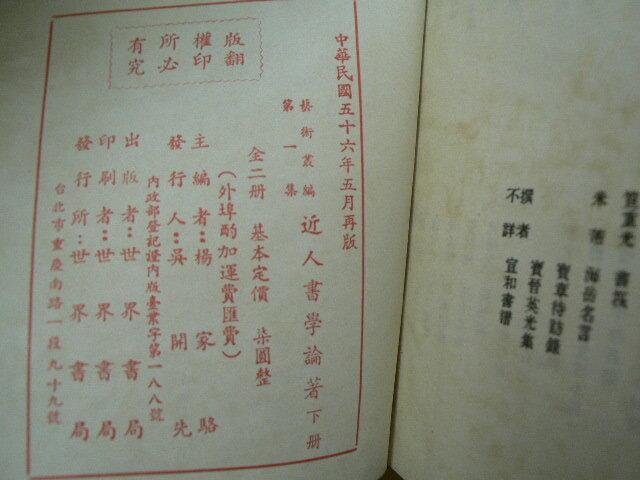 笪重光 書筏
米芾 海岳名言
寶章待訪錄
寶晉英光集
撰者不詳 宣和書譜
中華民國五十六年五月再版
藝術叢編
第一集
近人書學論著 下册
全二册 基本定價 柒圓整
(外埠酌加運費匯費)
主編者:楊家駱
發行人:吳開先
內政部登記證內版臺業字第一八八號
出版者:世界書局
印刷者:世界書局
發行所:世界書局
台北市重慶南路一段九十九號
版權所有
翻印必究